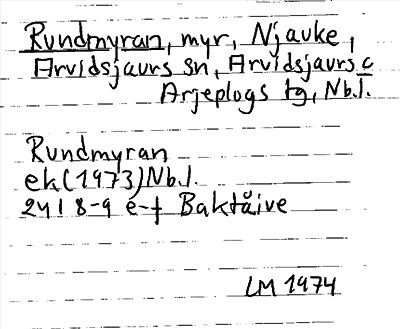 Rundmyran, myr, Njauke,
Arvidsjaurs sn, Arvidsjaurs c
Arjeplogs tg, Nb.l.
Rundmyran
ek(1973)Nb.l.
24I 8-9 e-f Baktåive
LM 1974